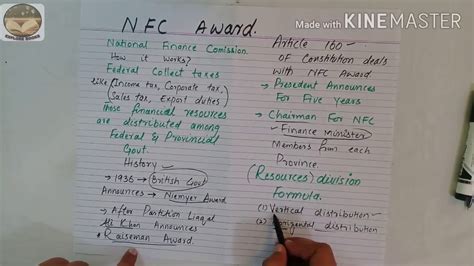 NFC Award.
Made with KINEMASTER
National Finance Comission.
How it works?
Federal Collect taxes
like (Income tax, Corporate tax,
Sales tax, Export duties)
those financial resources
are distributed among
Federal & Provincial
Govt.
History
→ 1936 → British Govt
Announces → Niemyer Award
→ After Partition Liaqat
Ali Khan Announces
Raiseman Award.
Article 160 –
OF Constitution deals
with NFC Award.
→ Presedent Announces
For Five years
→ Chairman For NFC
Finance minister
Members from each
Province.
(Resources) division
Formula.
(1) Vertical distribution –
(2) Horizental distribution